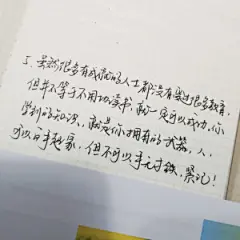 5、虽然很多有成就的人士都没有受过很多教育,
但并不等于不用功读书,就一定可以成功,你
学到的知识,就是你拥有的武器,人,
可以白手起家,但不可以手无寸铁,紧记!